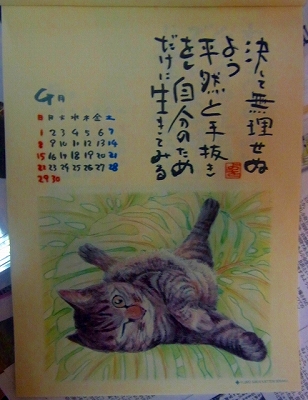 決して無理せぬ
よう
平然と手抜き
をし自分のため
だけに生きてみる
9月
日 月 火 水 木 金 土
1 2 3 4 5 6 7
8 9 10 11 12 13 14
15 16 17 18 19 20 21
22 23 24 25 26 27 28
29 30